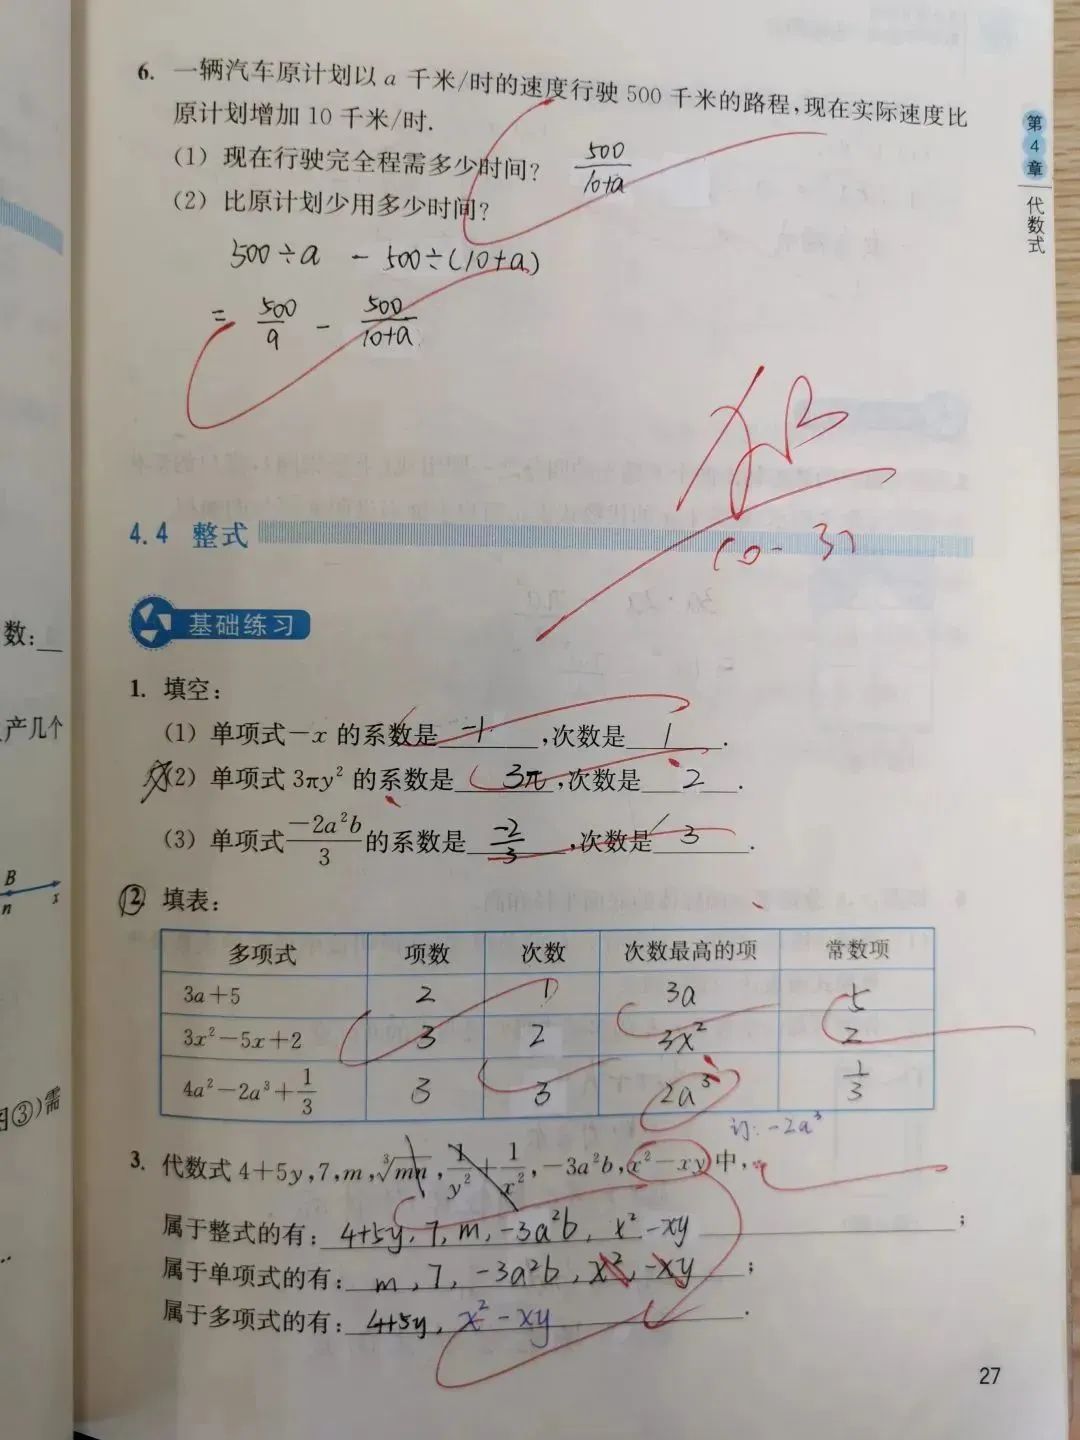 6. 一辆汽车原计划以 a 千米/时的速度行驶 500 千米的路程,现在实际速度比
原计划增加 10 千米/时.
(1) 现在行驶完全程需多少时间? 500/(10+a)
(2) 比原计划少用多少时间?
500÷a - 500÷(10+a)
= 500/a - 500/(10+a)
第4章 代数式
4.4 整式
基础练习
1. 填空:
(1) 单项式-x 的系数是 -1 ,次数是 1 .
(2) 单项式 3πy² 的系数是 3π ,次数是 2 .
(3) 单项式 -2a²b/3 的系数是 -2/3 ,次数是 3 .
2 填表:
多项式 项数 次数 次数最高的项 常数项
3a+5 2 1 3a 5
3x²-5x+2 3 2 3x² 2
4a²-2a³+1/3 3 3 2a³ 1/3
订: -2a³
3. 代数式 4+5y,7,m,∛mn,1/y²+1/x²,-3a²b,x²-xy 中,
属于整式的有: 4+5y, 7, m, -3a²b, x²-xy ;
属于单项式的有: m, 7, -3a²b, x², -xy ;
属于多项式的有: 4+5y, x²-xy .
27
数:
产几个
B
n
s
③)需